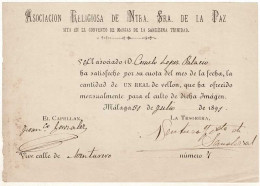 Asociacion Religiosa de Ntra. Sra. de la Paz
SITO EN EL CONVENTO DE MONJAS DE LA BARCENILLA TRINIDAD.
El asociado D. Consuelo Lopez Palacio
ha satisfecho por su cuota del mes de la fecha, la
cantidad de UN REAL de vellon, que ha ofrecido
mensualmente para el culto de dicha Imágen.
Málaga 31 de Julio de 189
EL CAPELLAN, LA TESORERA,
Franco. Gonzalez Ventura de
Sandoval
Vive calle de número 7